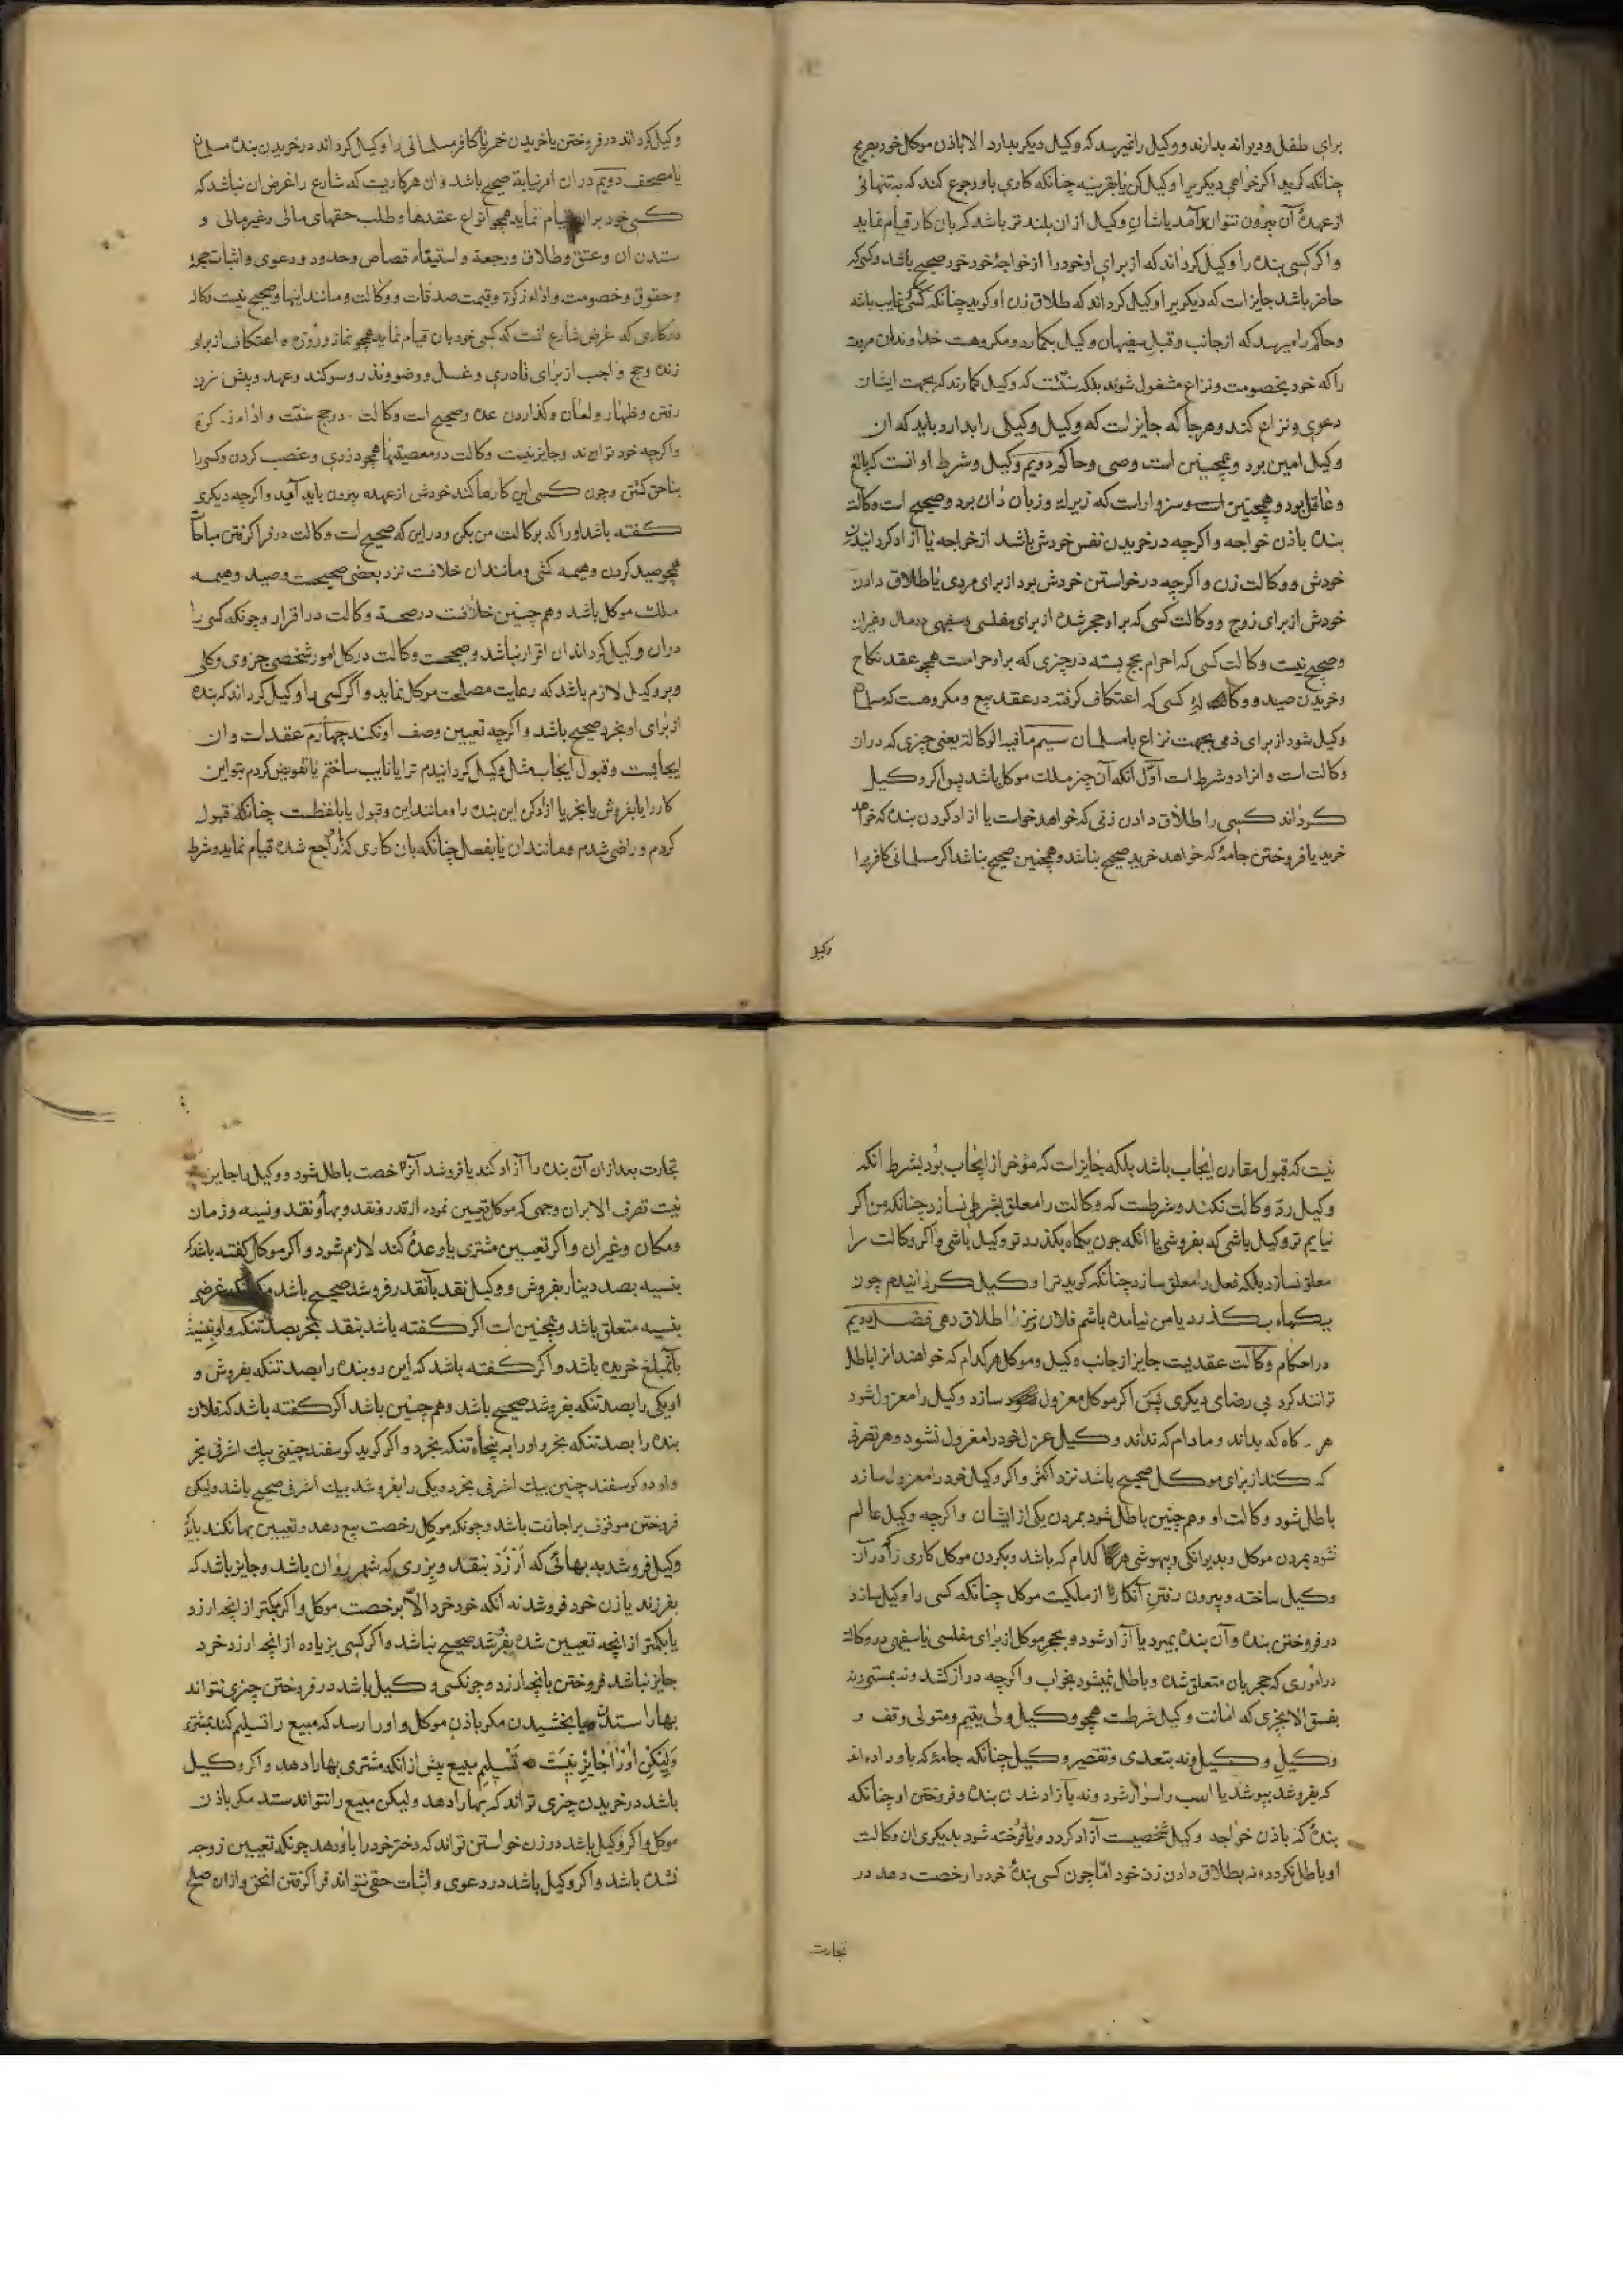 برای طفل و دیوانه بدارند و وکیل را نمیرسد که وکیل دیکر بدارد الا باذن موکل خود بصریح
چنانکه کوید اکر خواهی دیکریرا وکیل کن یا بقرینه چنانکه کاری باو رجوع کند که به تنهائی
از عهدهٔ آن بیرون نتوان آمد یا شان وکیل از ان بلند تر باشد که بان کار قیام نماید
و اکر کسی بنده را وکیل کرداند که از برای او خود را از خواجهٔ خود خرد صحیح باشد و کسی که
حاضر باشد جایز است که دیکریرا وکیل کرداند که طلاق زن او کوید چنانکه کسی که غایب باشد
و حاکم را میرسد که از جانب و قبل سفیهان وکیل بکمارد و مکروهست خداوندان مروت
را که خود بخصومت و نزاع مشغول شوند بلکه سنّتست که وکیل کمارند که بجهت ایشان
دعوی و نزاع کند و هرجا که جایز است که وکیل وکیلی را بدارد باید که ان
وکیل امین بود و همچنین است وصی و حاکم دویم وکیل و شرط او انست که بالغ
و عاقل بود و همچنین است و سزاوار است که زیرك و زبان دان بود و صحیح است وکالت
بنده باذن خواجه و اکرچه در خریدن نفس خودش باشد از خواجه یا آزاد کردانیدن
خودش و وکالت زن و اکرچه در خواستن خودش بود از برای مردی یا طلاق دادن
خودش از برای زوج و وکالت کسی که بر او حجر شده از برای مفلسی و سفیهی در مال و غیر ان
و صحیح نیست وکالت کسی که احرام بحج بسته در چیزی که بر او حرامست همچو عقد نکاح
و خریدن صید و وکالت کسی که اعتکاف کرفته در عقد بیع و مکروهست که مسلمان
وکیل شود از برای ذمی بجهت نزاع با مسلمان سیم ما فیه الوکالة یعنی چیزی که در ان
وکالت است و انرا دو شرط است اوّل انکه آن چیز ملك موکل باشد پس اکر وکیل
کرداند کسی را طلاق دادن زنی که خواهد خواست یا ازاد کردن بنده که خواهد
خرید یا فروختن جامهٔ که خواهد خرید صحیح نباشد و همچنین صحیح نباشد اکر مسلمانی کافریرا
وکیل
وکیل کرداند در فروختن یا خریدن خمر یا کافر مسلمانی را وکیل کرداند در خریدن بنده مسلمان
یا مصحف دویم در ان امر نیابة صحیح باشد و ان هر کاریست که شارع را غرض ان نباشد که
کسی خود بران قیام نماید همچو انواع عقدها و طلب حقهای مالی و غیر مالی و
ستدن ان و عتق و طلاق و رجعة و استیفاء قصاص و حدود و دعوی و اثبات حجة
و حقوق و خصومت و اداء زکوة و قیمت صدقات و وکالت و مانند اینها و صحیح نیست وکالة
در کاری که غرض شارع انست که کسی خود بان قیام نماید همچو نماز و روزه و اعتکاف از برای
زنده و حج واجب از برای قادری و غسل و وضو و نذر و سوکند و عهد و پیش زن
رفتن و ظهار و لعان و کذاردن عده و صحیح است وکالت در حج سنّت و اداء زکوة
و اکرچه خود تواند و جایز نیست وکالت در معصیتها همچو دزدی و غصب کردن و کسی را
بناحق کشتن و چون کسی این کارها کند خودش از عهده بیرون باید آمد و اکرچه دیکری
کفته باشد او را که بوکالت من بکن و در این که صحیح است وکالت در فرا کرفتن مباحات
همچو صید کردن و هیمه کشی و مانند ان خلافست نزد بعضی صحیحست و صید و هیمه
ملك موکل باشد و هم چنین خلافست در صحة وکالت در اقرار و چونکه کسی را
در ان وکیل کرداند ان اقرار نباشد و صحیحست وکالت در کل امور شخصی جزوی و کلی
و بر وکیل لازم باشد که رعایت مصلحت موکل نماید و اکر کسی را وکیل کرداند که بنده
از برای او بخرد صحیح باشد و اکرچه تعیین وصف او نکند چهارم عقد است و ان
ایجابست و قبول ایجاب مثل وکیل کردانیدم ترا یا نایب ساختم یا تفویض کردم بتو این
کار را یا بفروش یا بخر یا ازاد کن این بنده را و مانند این و قبول یا بلفظست چنانکه قبول
کردم و راضی شدم و مانند ان یا بفعل چنانکه بان کاری که راجع شده قیام نماید و شرط
نیست که قبول مقارن ایجاب باشد بلکه جایز است که مؤخر از ایجاب بود بشرط انکه
وکیل ردّ وکالت نکند و شرطست که وکالت را معلق بشرطی نسازد چنانکه من اکر
نیایم تو وکیل باشی که بفروشی یا انکه چون یکماه بکذرد تو وکیل باشی و اکر وکالت را
معلق نسازد بلکه فعل را معلق سازد چنانکه کوید ترا وکیل کردانیدم چون
یکماه بکذرد یا من نیامده باشم فلان زنم را طلاق دهی فصل دویم
در احکام وکالت عقدیست جایز از جانب وکیل و موکل هر کدام که خواهند انرا باطل
توانند کرد بی رضای دیکری پس اکر موکل معزول سازد وکیل را معزول شود
هر کاه که بداند و مادام که نداند وکیل عزل خود را معزول نشود و هر تصرفی
که کند از برای موکل صحیح باشد نزد اکثر و اکر وکیل خود را معزول سازد
باطل شود وکالت او و هم چنین باطل شود بمردن یکی از ایشان و اکرچه وکیل عالم
نشود بمردن موکل و بدیوانکی و بیهوشی هر کدام که باشد و بکردن موکل کاری را که در آن
وکیل ساخته و بیرون رفتن آنکار از ملکیت موکل چنانکه کسی را وکیل سازد
در فروختن بنده و آن بنده بمیرد یا آزاد شود و بحجر موکل از برای مفلسی یا سفیهی در وکالت
در اموری که حجر بان متعلق شده و باطل نمیشود بخواب و اکرچه دراز کشد و نه بمستی و نه
بفسق الا بچیزی که امانت وکیل شرطست همچو وکیل ولی یتیم و متولی وقف و
وکیل وکیل و نه بتعدی و تقصیر وکیل چنانکه جامهٔ که باو داده اند
که بفروشد بپوشد یا اسب را سوار شود و نه بآزاد شدن بنده و فروختن او چنانکه
بندهٔ که باذن خواجه وکیل شخصیست آزاد کردد و یا فروخته شود بدیکری ان وکالت
او باطل نکردد و نه بطلاق دادن زن خود امّا چون کسی بندهٔ خود را رخصت دهد در
تجارت
تجارت بعد از ان آن بنده را آزاد کند یا فروشد آنرخصت باطل شود و وکیل را جایز
نیست تصرف الا بران وجهی که موکل تعیین نموده از قدر و نقد و بها و نقد و نسیه و زمان
و مکان و غیر ان و اکر تعیین مشتری یا وعده کند لازم شود و اکر موکل کفته باشد که
بنسیه بصد دینار بفروش و وکیل نقد بآنقدر فروشد صحیح باشد غرضی
بنسیه متعلق باشد و همچنین است اکر کفته باشد بنقد بخر بصد تنکه و او بنسیه
بآنمبلغ خریده باشد و اکر کفته باشد که این دو بنده را بصد تنکه بفروش و
او یکی را بصد تنکه بفروشد صحیح باشد و هم چنین باشد اکر کفته باشد که فلان
بنده را بصد تنکه بخر و او را به پنجاه تنکه بخرد و اکر کوید کوسفند چنینی بیك اشرفی بخر
و او دو کوسفند چنین بیك اشرفی بخرد و یکی را بفروشد بیك اشرفی صحیح باشد ولیکن
فروختن موقوف بر اجازت باشد و چونکه موکل رخصت بیع دهد و تعیین بها نکند باید که
وکیل فروشد به بهائی که ارزد بنقد و بزری که شهر روان باشد و جایز باشد که
بفرزند یا زن خود فروشد نه آنکه خود خرد الا برخصت موکل و اکر بکمتر از انچه ارزد
یا بکمتر از انچه تعیین شده بفروشد صحیح نباشد و اکر کسی بزیاده از انچه ارزد خرد
جایز نباشد فروختن بانچه ارزد و چونکسی وکیل باشد در فروختن چیزی نتواند
بها را ستدن یا بخشیدن مکر باذن موکل و او را رسد که مبیع را تسلیم کند بمشتری
ولیکن او را جایز نیست تسلیم مبیع پیش از انکه مشتری بها را دهد و اکر وکیل
باشد در خریدن چیزی تواند که بها را دهد ولیکن مبیع را نتواند ستد مکر باذن
موکل و اکر وکیل باشد در زن خواستن تواند که دختر خود را باو دهد چونکه تعیین زوجه
نشده باشد و اکر وکیل باشد در دعوی و اثبات حقی نتواند فرا کرفتن انحق و از ان صلح